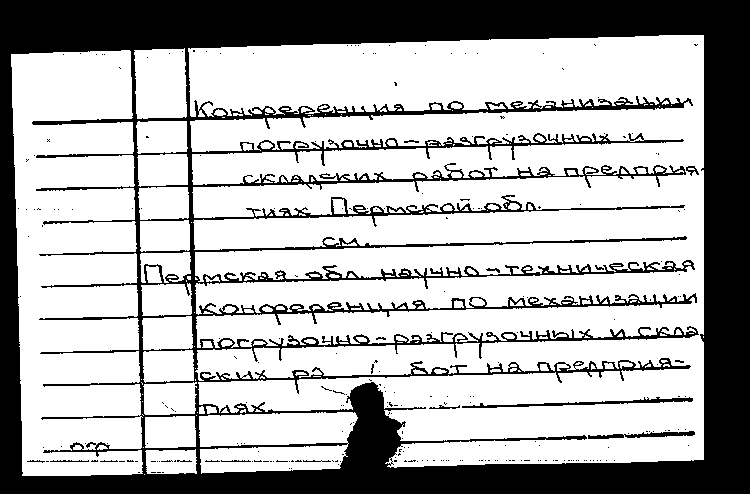 Конференция по механизации
погрузочно-разгрузочных и
складских работ на предприя-
тиях Пермской обл.
см.
Пермская обл. научно-техническая
конференция по механизации
погрузочно-разгрузочных и склад
ских ра бот на предприя-
тиях.